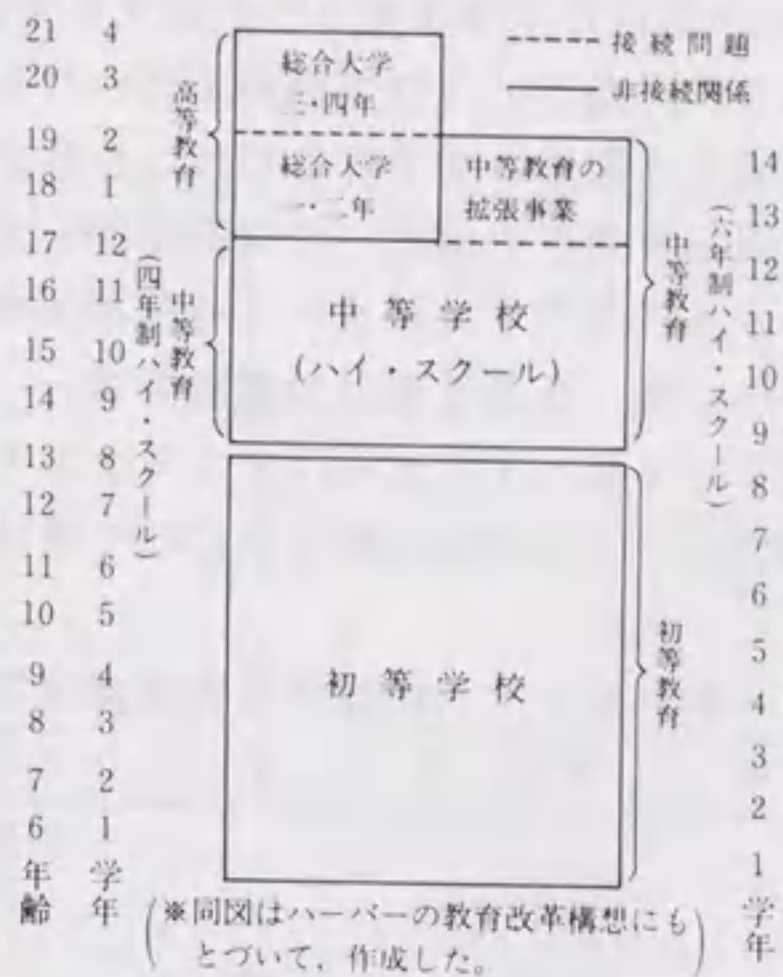 21 4
20 3
19 2
18 1
17 12
16 11
15 10
14 9
13 8
12 7
11 6
10 5
9 4
8 3
7 2
6 1
年齢
学年
高等教育
中等教育
(四年制ハイ・スクール)
総合大学
三・四年
総合大学
一・二年
中等教育の
拡張事業
----- 接続問題
―― 非接続関係
中等学校
(ハイ・スクール)
初等学校
中等教育
(六年制ハイ・スクール)
初等教育
14
13
12
11
10
9
8
7
6
5
4
3
2
1
学年
(※同図はハーバーの教育改革構想にも
とづいて，作成した。)